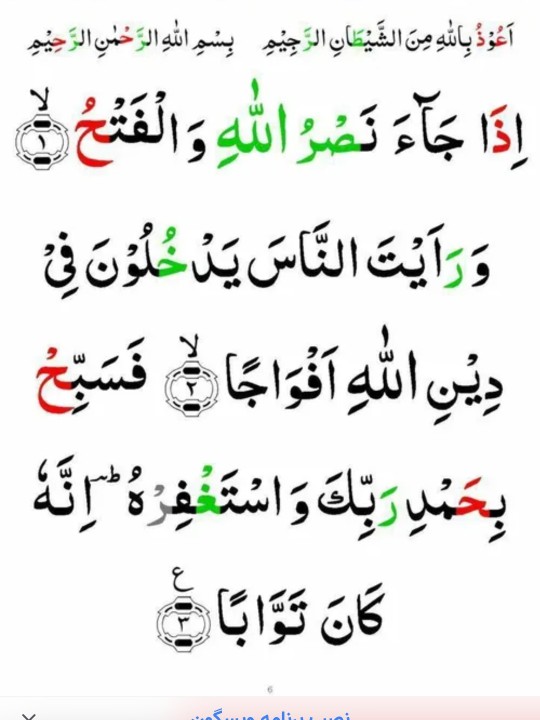 اَعُوْذُ بِاللّٰهِ مِنَ الشَّيْطَانِ الرَّجِيْمِ    بِسْمِ اللّٰهِ الرَّحْمٰنِ الرَّحِيْمِ
اِذَا جَآءَ نَصْرُ اللّٰهِ وَالْفَتْحُ ۙ ﴿١﴾
وَرَاَيْتَ النَّاسَ يَدْخُلُوْنَ فِيْ
دِيْنِ اللّٰهِ اَفْوَاجًا ۙ ﴿٢﴾ فَسَبِّحْ
بِحَمْدِ رَبِّكَ وَاسْتَغْفِرْهُ ؕ اِنَّهٗ
كَانَ تَوَّابًا ﴿٣﴾ ع
6
نصب برنامه ویسگون